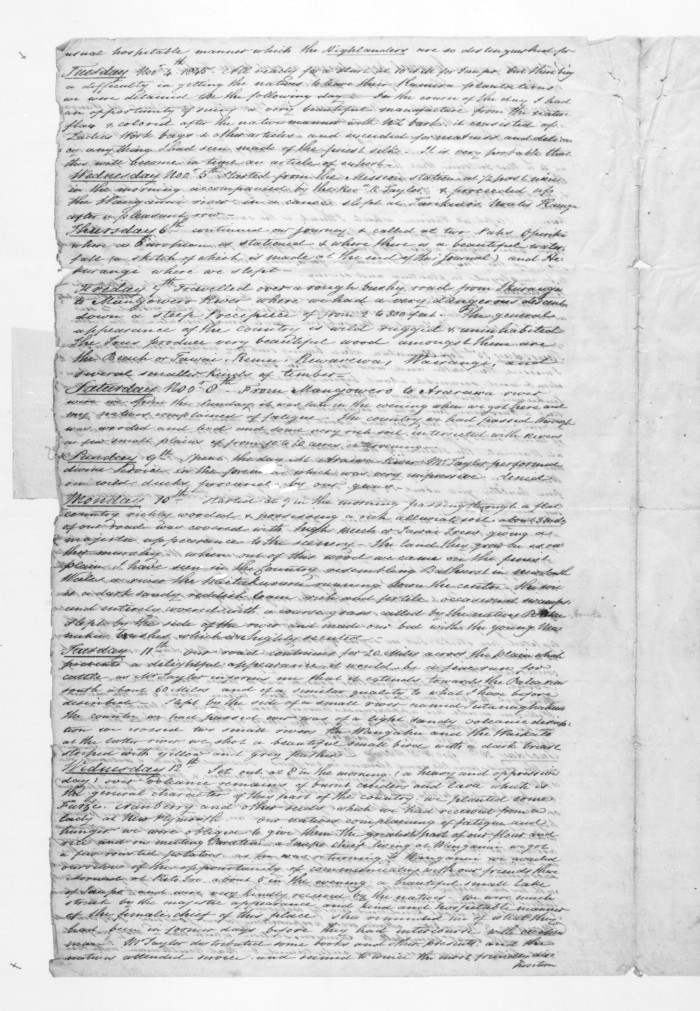 usual hospitable manner which the Highlanders are so distinguished for
Tuesday Nov 4th 1845. All ready for a start at 10 o'clk for Taupo. but their being
a difficulty in getting the natives to leave their Kumera plantations
we were detained till the following day. In the course of the day I had
an opportunity of seeing a very beautiful manufacture from the native
flax & colored after the native manner with barks. it consisted of
Ladies Work bags & other articles. and exceeded for neatness and
any thing I had seen made of the finest silks. It is very probable that
this will become in time an article of export.
Wednesday Nov 5th Started from the Mission station at
in the morning accompanied by the Revd R. Taylor. & proceeded up
the Wanganui river in a canoe slept at
after a pleasant row.
Thursday 6th continued our journey & called at two Pahs
where a European is stationed & where there is a beautiful water
fall (a sketch of which is made at the end of the Journal) and
where we slept.
7th Travelled over a rough bushy road from
to River where we had a very dangerous descent
down a steep Precepiece of from 2 to 300 feet. The general
appearance of the country is wild rugged & uninhabited
The Trees produce very beautiful wood amongst them are
the Beech or Tawai. Remu. Rewarewa. and
several smaller kinds of timber.
Saturday Nov 8th From Mangowero to river
were up from the Sunday it was late in the evening when we got here and
my natives complained of fatigue. The country we had passed through
was wooded and and some very rich soil intersected with Rivers
a few small plains of from 10 to 12 acres
Sunday 9th Spent the day at River Mr Taylor performed
divine Service in the forest which was very impressive. dined
on wild ducks procured by our guns.
Monday 10th started at 9 in the morning passing through a flat
country richly wooded & possessing a rich alluvial soil
of our road was covered with high Beech or Tawai Trees. giving a
majestic appearance to the scenery. The land they grow on is
When out of this wood we came on the finest
plain I have seen in the country resembling Bathurst in new South
Wales a river the running down the center. the
is a dark sandy reddish loam rich and fertile. occasional swamps
and entirely covered with a course grass called by the natives
Slept by the side of the river and made our bed with the young
bushes. which are highly scented
Tuesday 11th our road continues for 20 Miles across the plain which
presents a delightful appearance it would be a fine run for
cattle, as Mr Taylor informs me that it extends towards the
south about 60 Miles and of a similar quality to what I have before
described. slept by the side of a small river named
the country we had passed over was of a light sandy volcanic
we crossed two small rivers the Wangahu and the Waikato
at the latter river we shot a beautiful small bird with a dark breast
striped with yellow and grey feathers
Wednesday 12th Set out at 8 in the morning (a heavy and oppressive
day) over Volcanic remains of burnt cinders and Lava which is
the general character of this part of the country. we planted some
Furze. cranberry and other seeds which we had received from a
Lady at New Plymouth. our natives complaining of fatigue and
hunger we were obliged to give them the greatest part of our flour and
rice and on meeting a Taupo chief living at Wanganui we got
a few roasted potatoes. as he was returning to Wanganui we availed
ourselves of the opportunity of communicating with our friends there
Arrived at about 5 in the evening a beautiful small Lake
of Taupo and were very kindly received by the natives. we were much
struck by the majestic appearance and kind and hospitable manner
of the female chief of this place. She reminded me of what they
had been in former days before they had intercourse with
man. Mr Taylor distributed some books and other presents and the
natives attended service and seemed to evince the most friendly dis
position